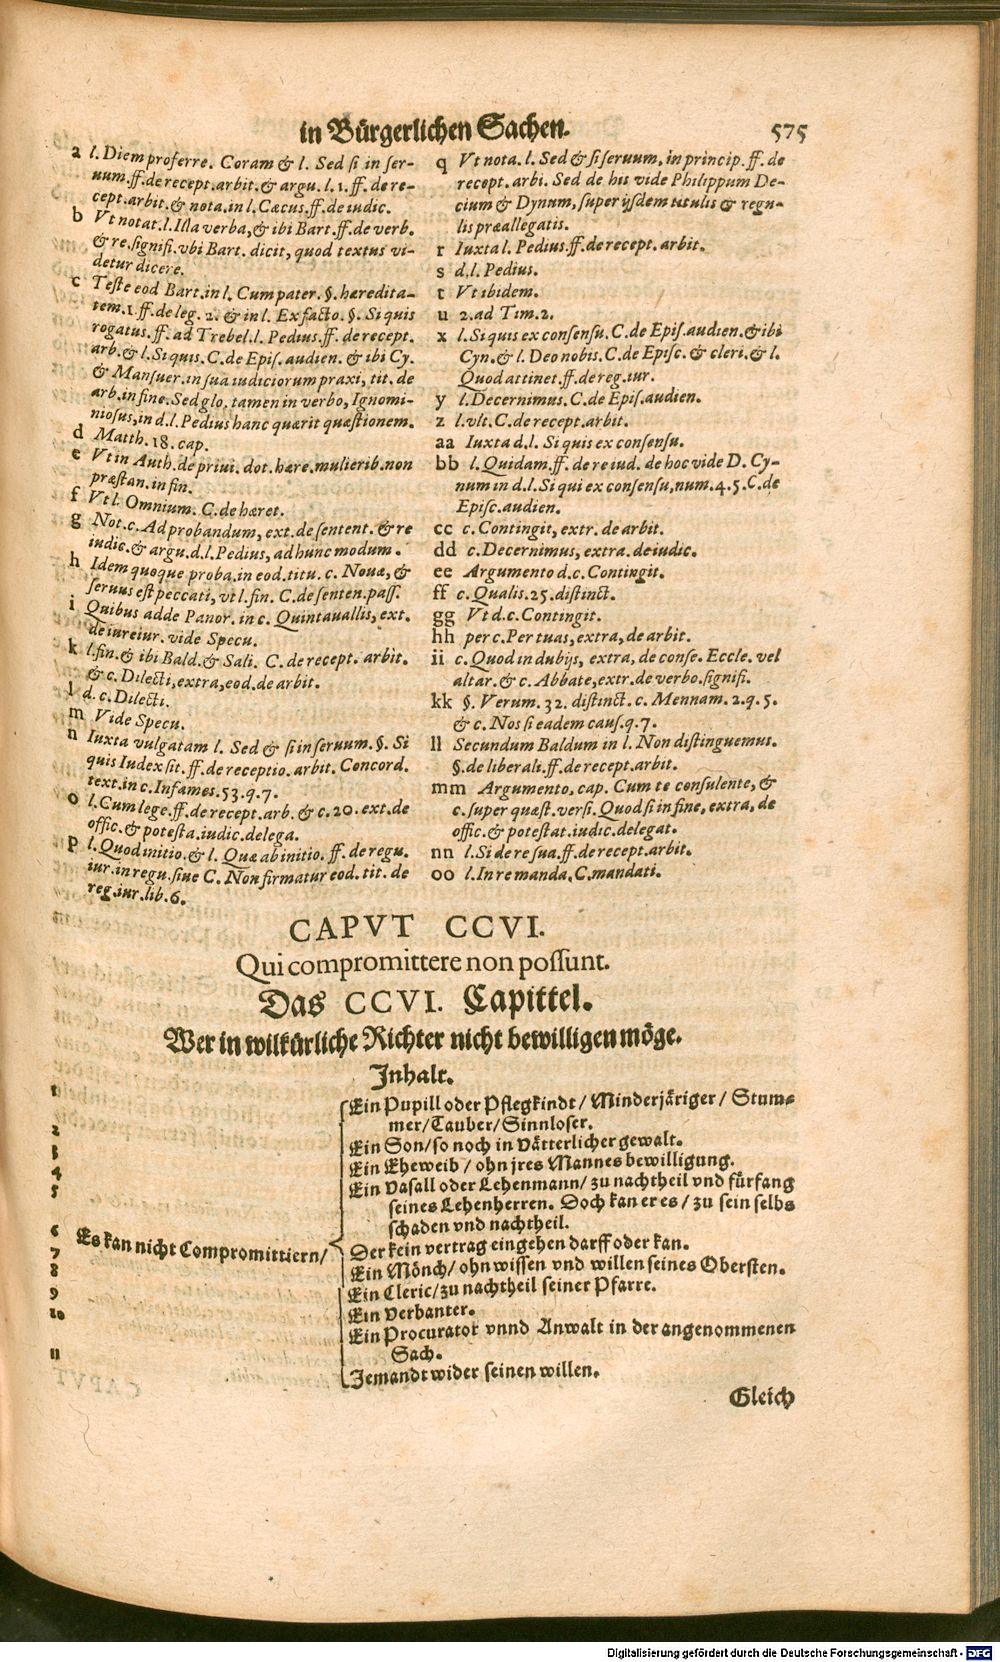 in Bürgerlichen Sachen. 575
a l. Diem proferre. Coram & l. Sed si in ser-
uum. ff. de recept. arbit. & argu. l. 1. ff. de re-
cept. arbit. & nota. in l. Cæcus. ff. de iudic.
b Vt notat. l. Illa verba, & ibi Bart. ff. de verb.
& re. signifi. vbi Bart. dicit, quod textus vi-
detur dicere.
c Teste eod Bart. in l. Cum pater. §. heredita-
tem. 1. ff. de leg. 2. & in l. Ex facto. §. Si quis
rogatus. ff. ad Trebel. l. Pedius. ff. de recept.
arb. & l. Si quis. C. de Epis. audien. & ibi Cy.
& Mansuer. in sua iudiciorum praxi, tit. de
arb. in fine. Sed glo. tamen in verbo, Ignomi-
niosus, in d. l. Pedius hanc quærit quæstionem.
d Matth. 18. cap.
e Vt in Auth. de priui. dot. hære. mulierib. non
præstan. in fin.
f Vt l. Omnium. C. de hæret.
g Not. c. Ad probandum, ext. de sentent. & re
iudic. & argu. d. l. Pedius, ad hunc modum.
h Idem quoque proba. in eod. titu. c. Nouæ, &
seruus est peccati, vt l. fin. C. de senten. pass.
i Quibus adde Panor. in c. Quintauallis, ext.
de iureiur. vide Specu.
k l. fin. & ibi Bald. & Sali. C. de recept. arbit.
& c. Dilecti, extra, eod. de arbit.
l d. c. Dilecti.
m Vide Specu.
n Iuxta vulgatam l. Sed & si in seruum. §. Si
quis Iudex sit. ff. de receptio. arbit. Concord.
text. in c. Infames. 53. q. 7.
o l. Cum lege. ff. de recept. arb. & c. 20. ext. de
offic. & potesta. iudic. delega.
p l. Quod initio. & l. Quæ ab initio. ff. de regu.
iur. in regu. siue C. Non firmatur eod. tit. de
reg. iur. lib. 6.
q Vt nota. l. Sed & si seruum, in princip. ff. de
recept. arbi. Sed de his vide Philippum De-
cium & Dynum, super ijsdem titulis & regu-
lis præallegatis.
r Iuxta l. Pedius. ff. de recept. arbit.
s d. l. Pedius.
t Vt ibidem.
u 2. ad Tim. 2.
x l. Si quis ex consensu. C. de Epis. audien. & ibi
Cyn. & l. Deo nobis. C. de Episc. & cleri. & l.
Quod attinet. ff. de reg. iur.
y l. Decernimus. C. de Epis. audien.
z l. vlt. C. de recept. arbit.
aa Iuxta d. l. Si quis ex consensu.
bb l. Quidam. ff. de re iud. de hoc vide D. Cy-
num in d. l. Si qui ex consensu, num. 4. 5. C. de
Episc. audien.
cc c. Contingit, extr. de arbit.
dd c. Decernimus, extra. de iudic.
ee Argumento d. c. Contingit.
ff c. Qualis. 25. distinct.
gg Vt d. c. Contingit.
hh per c. Per tuas, extra, de arbit.
ii c. Quod in dubijs, extra, de conse. Eccle. vel
altar. & c. Abbate, extr. de verbo. signifi.
kk §. Verum. 32. distinct. c. Mennam. 2. q. 5.
& c. Nos si eadem caus. q. 7.
ll Secundum Baldum in l. Non distinguemus.
§. de liberali. ff. de recept. arbit.
mm Argumento, cap. Cum te consulente, &
c. super quæst. versi. Quod si in fine, extra, de
offic. & potestat. iudic. delegat.
nn l. Si de re sua. ff. de recept. arbit.
oo l. In re manda. C. mandati.
CAPVT CCVI.
Qui compromittere non possunt.
Das CCVI. Capittel.
Wer in wilkürliche Richter nicht bewilligen möge.
Inhalt.
Es kan nicht Compromittiern/
1 Ein Pupill oder Pflegkindt / Minderjäriger / Stum-
mer/Tauber/Sinnloser.
2 Ein Son/so noch in vätterlicher gewalt.
3 Ein Eheweib / ohn jres Mannes bewilligung.
4 Ein Vasall oder Lehenmann/ zu nachtheil vnd fürfang
5 seines Lehenherren. Doch kan er es / zu sein selbs
schaden vnd nachtheil.
6 Der kein vertrag eingehen darff oder kan.
7 Ein Mönch/ ohn wissen vnd willen seines Obersten.
8 Ein Cleric/zu nachtheil seiner Pfarre.
9 Ein Verbanter.
10 Ein Procurator vnnd Anwalt in der angenommenen
Sach.
11 Jemandt wider seinen willen.
Gleich
Digitalisierung gefördert durch die Deutsche Forschungsgemeinschaft - DFG